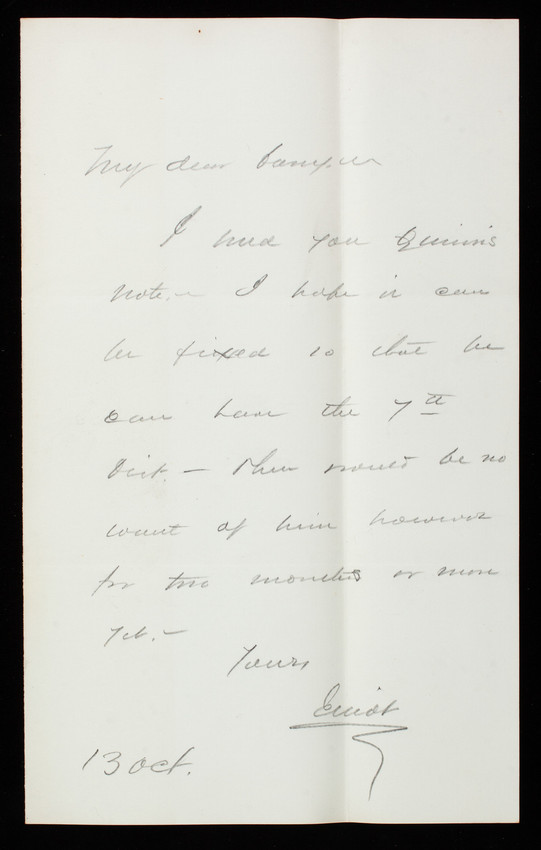 My dear Casey. –
I send you Quinn's
note. – I hope it can
be fixed so that he
can have the 7th
Dist. – There would be no
want of him however
for two months or more
yet. –
Yours
13 Oct.